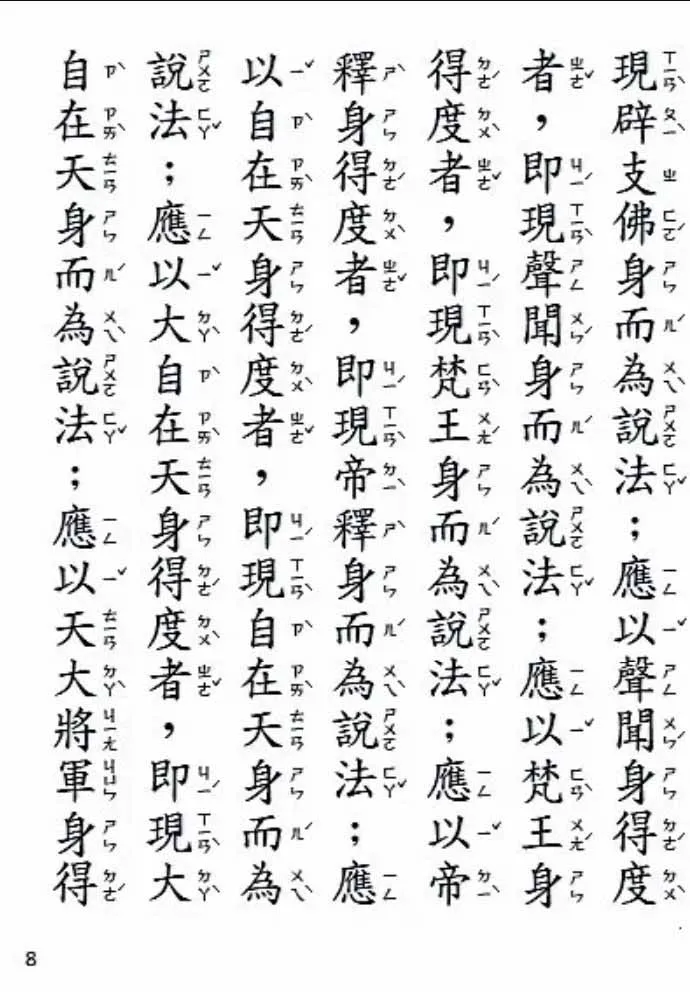 現辟支佛身而為說法；應以聲聞身得度
者，即現聲聞身而為說法；應以梵王身
得度者，即現梵王身而為說法；應以帝
釋身得度者，即現帝釋身而為說法；應
以自在天身得度者，即現自在天身而為
說法；應以大自在天身得度者，即現大
自在天身而為說法；應以天大將軍身得
8